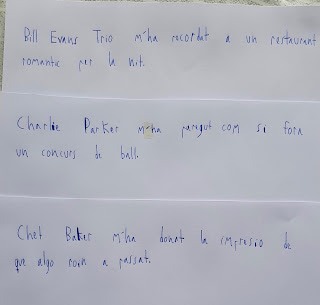 Bill Evans Trio m'ha recordat a un restaurant
romantic per la nit.
Charlie Parker m'ha paregut com si fora
un concurs de ball.
Chet Baker m'ha donat la impresio de
que algo roin a passat.